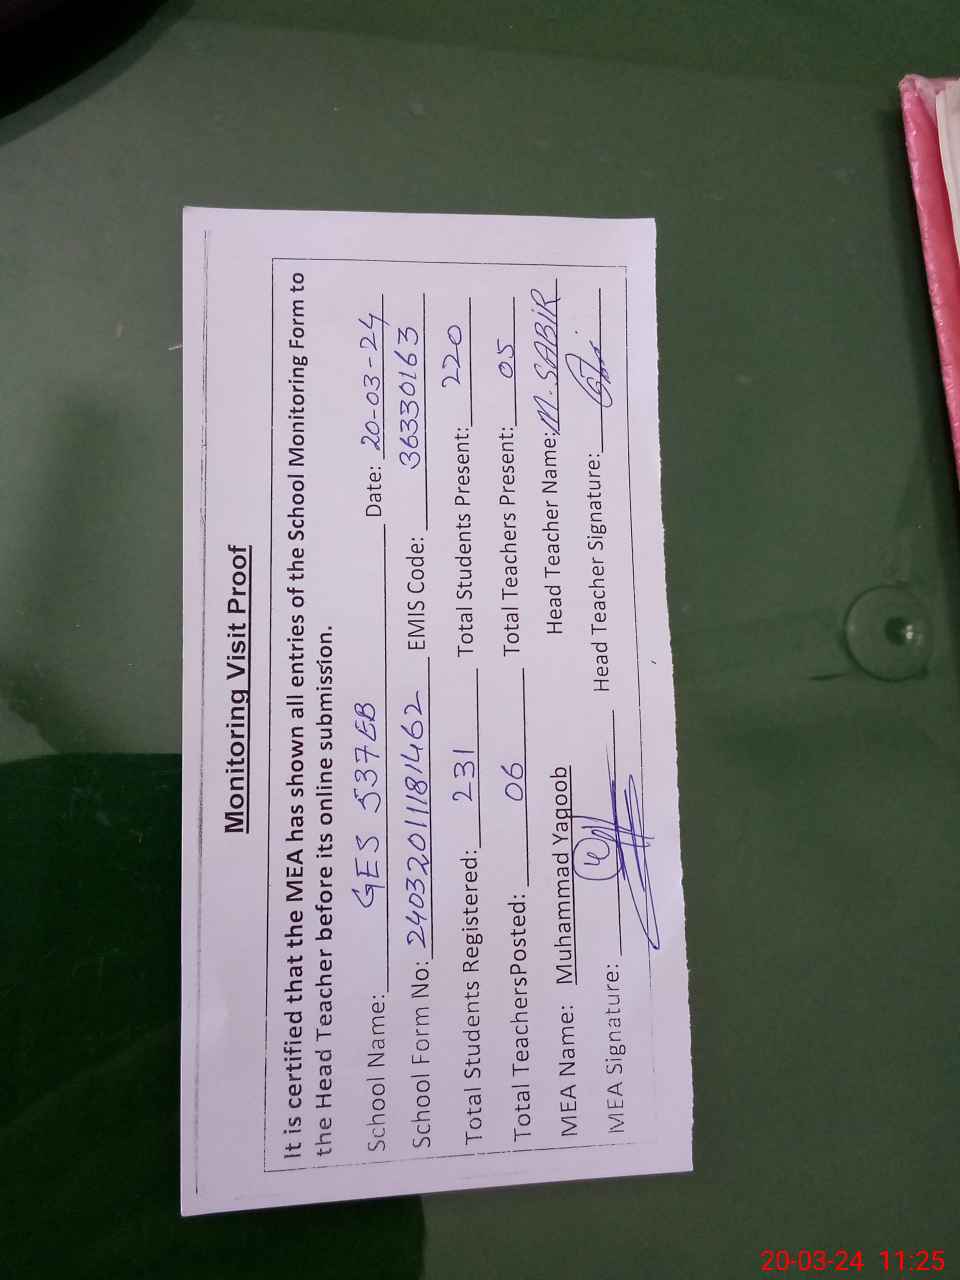 Monitoring Visit Proof
It is certified that the MEA has shown all entries of the School Monitoring Form to
the Head Teacher before its online submission.
School Name: GES 537EB Date: 20-03-24
School Form No: 24032011181462 EMIS Code: 36330163
Total Students Registered: 231 Total Students Present: 220
Total TeachersPosted: 06 Total Teachers Present: 05
MEA Name: Muhammad Yaqoob Head Teacher Name: M. SABIR
MEA Signature: Head Teacher Signature:
20-03-24 11:25